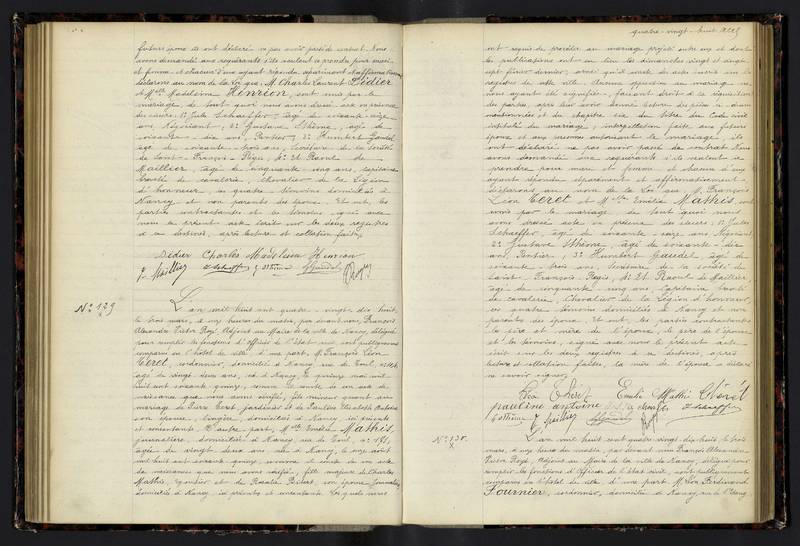 futurs époux ils ont déclaré n'avoir pas passé de contrat. Nous
avons demandé aux requérants s'ils veulent se prendre pour mari
et femme et chacun d'eux ayant répondu séparément et affirmativement
déclarons au nom de la Loi que M. Charles Laurent Didier
et Mlle Madeleine Henrion, sont unis par le
mariage de tout quoi nous avons dressé acte en présence
des sieurs: 1° Jules Schaeffer âgé de soixante-seize
ans, Négociant, 2° Gustave Sthème, âgé de
soixante-dix ans, Rentier, 3° Humbert Gaudel
âgé de soixante-trois ans, Secrétaire de la Société
de Saint-François-Régis, 4° et Raoul de
Maillier, âgé de cinquante cinq ans, capitaine
breveté de cavalerie, Chevalier de la Légion
d'honneur, ces quatre témoins domiciliés à
Nancy et non parents des époux. Et ont, les
parties contractantes et les témoins, signé avec
nous le présent acte écrit sur les deux registres
à ce destinés, après lecture et collation faites.
Didier Charles Madeleine Henrion
N° 129
L'an mil huit cent quatre-vingt-dix-huit,
le trois mars, à onze heures du matin, par devant nous, François
Alexandre Victor Royé, Adjoint au Maire de la ville de Nancy, délégué
pour remplir les fonctions d'Officier de l'état civil, sont publiquement
comparus en l'hôtel de ville d'une part, M. François Léon
Ceret, cordonnier, domicilié à Nancy, rue de Toul,
âgé de vingt deux ans, né à Nancy, le quinze mai mil
huit cent soixante quinze, comme le constate un acte de
naissance que nous avons vérifié, fils mineur quant au
mariage de Pierre Ceret, jardinier et de Pauline Elisabeth Antoine
son épouse, lingère, domiciliés à Nancy, ici présents
et consentants. D'autre part, Mlle Emélia Mathis,
journalière, domiciliée à Nancy, rue de Toul, n° 181,
âgée de vingt deux ans, née à Nancy, le onze août
mil huit cent soixante quinze, comme il conste de son acte
de naissance que nous avons vérifié, fille majeure de Charles
Mathis, et de Rosalie son épouse, journalière
domiciliés à Nancy, ici présents et consentants. Lesquels nous
quatre-vingt-huit
ont requis de procéder au mariage projeté entre eux et dont
les publications ont eu lieu les dimanches vingt et vingt
sept février dernier, ainsi qu'il conste des actes inscrits sur les
registres de cette ville. Aucune opposition au mariage ne
nous ayant été signifiée, faisant droit à la réquisition
des parties, après leur avoir donné lecture des pièces ci-dessus
mentionnées et du chapitre six du titre du Code civil
intitulé du mariage; interpellation faite aux futurs
époux et aux personnes autorisant le mariage, ils
ont déclaré ne pas avoir passé de contrat. Nous
avons demandé aux requérants s'ils veulent se
prendre pour mari et femme et chacun d'eux
ayant répondu séparément et affirmativement,
déclarons au nom de la Loi que M. François
Léon Ceret et Mlle Emélia Mathis, sont
unis par le mariage de tout quoi nous
avons dressé acte en présence des sieurs: 1° Jules
Schaeffer, âgé de soixante-seize ans, Négociant
2° Gustave Sthème, âgé de soixante-dix
ans, Rentier, 3° Humbert Gaudel, âgé de
soixante-trois ans, Secrétaire de la société de
Saint-François-Régis, 4° et Raoul de Maillier,
âgé de cinquante cinq ans, Capitaine breveté
de cavalerie, Chevalier de la Légion d'honneur,
ces quatre témoins domiciliés à Nancy et non
parents des époux. Et ont, les parties contractantes
le père et mère de l'époux, le père de l'épouse
et les témoins, signé avec nous le présent acte
écrit sur les deux registres à ce destinés, après
lecture et collation faites, la mère de l'épouse a déclaré
ne savoir signer.
Léon Chéret Emélie Mathis Chéret
pauline antoine
N° 130
L'an mil huit cent quatre-vingt-dix-huit, le trois
mars, à onze heures du matin, par devant nous François Alexandre
Victor Royé, Adjoint au Maire de la ville de Nancy, délégué pour
remplir les fonctions d'Officier de l'état civil, sont publiquement
comparus en l'hôtel de ville d'une part M. Léon Ferdinand
Fournier, cordonnier, domicilié à Nancy, rue de l'Etang